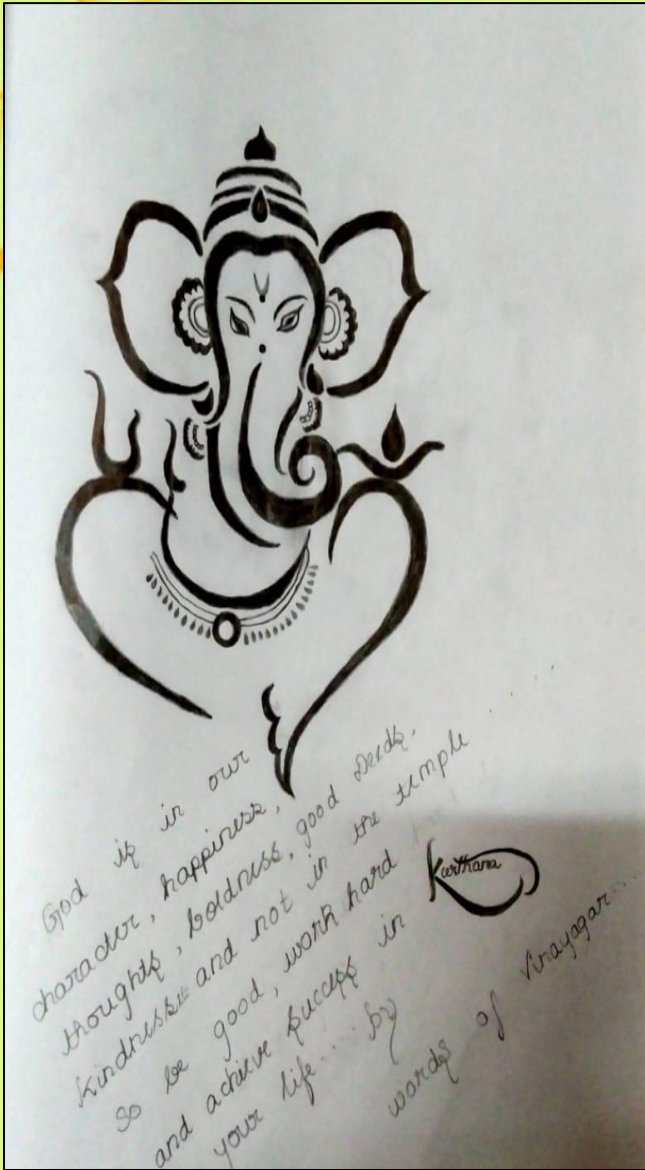 God is in our
character, happiness,
thoughts, boldness, good Deeds,
kindness and not in the temple
So be good, work hard
and achieve success in
your life.... by
words of Vinayagar....
Keerthana